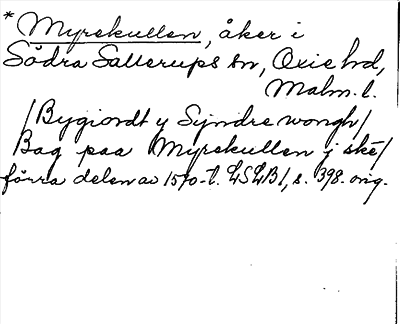 * Myrekullen, åker i
Södra Sallerups sn, Oxie hd,
Malm. l.
/Bygiordt y Syndre wongh/
Bag paa Myrekullen j skē/
förra delen av 1570-t. LSLB1, s. 398. orig.